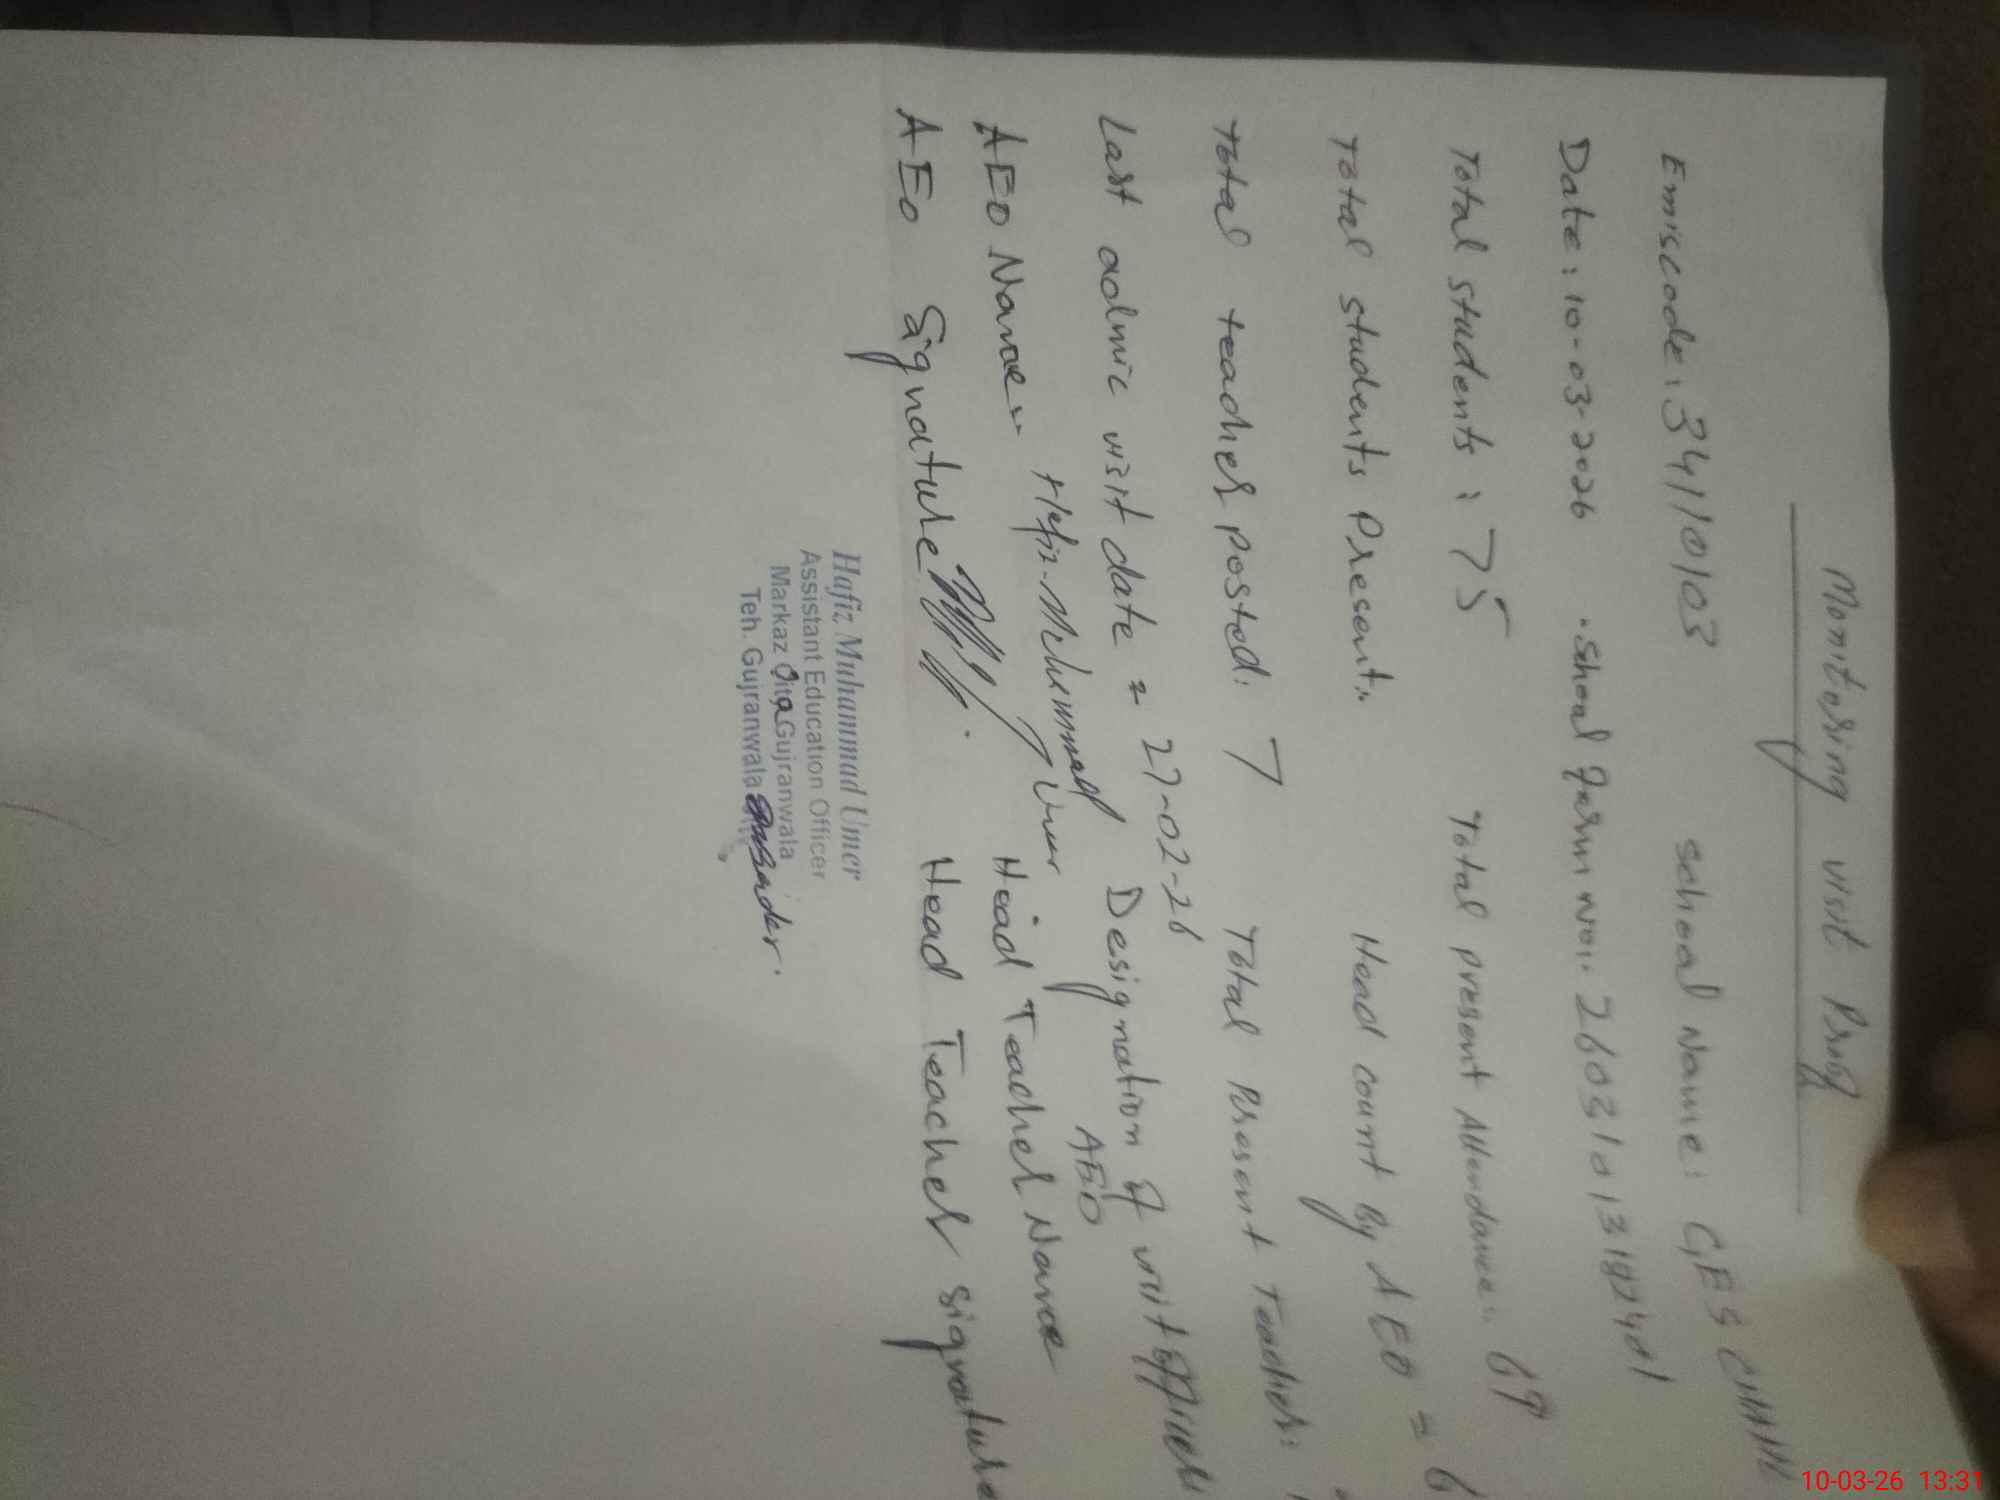 Monitoring visit Proof
Emiscode: 34110103 School Name: GES
Date: 10-03-2026 School Form No:
Total students: 75 Total present Attendance: 69
Total students Present: Head count by AEO = 6
Total teacher posted: 7 Total Present Teacher:
Last admic visit date = 27-02-26 Designation of visit officer
AEO
AEO Name: Hafiz Muhammad Umer Head Teacher Name
AEO Signature Head Teacher signature
Hafiz Muhammad Umer
Assistant Education Officer
Markaz Gujranwala
Teh. Gujranwala Saddar.
10-03-26 13:31